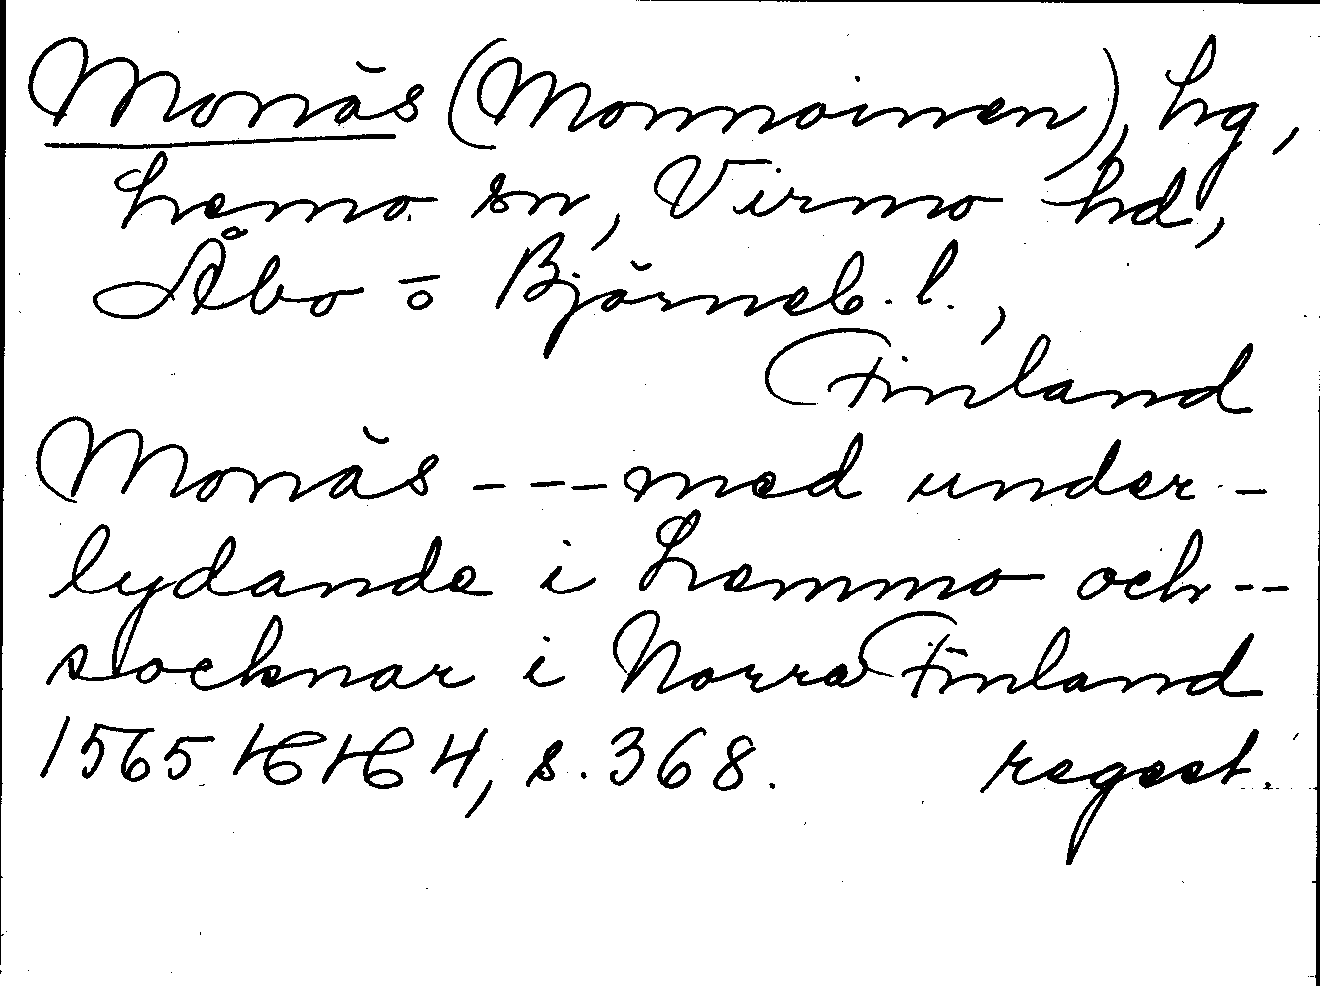 Monäs (Monnoinen), hg,
Lemo sn, Virmo hd,
Åbo o Björneb. l.,
Finland
Monäs --- med under-
lydande i Lemmo och --
socknar i Norra Finland
1565 HH 4, s. 368. regest.